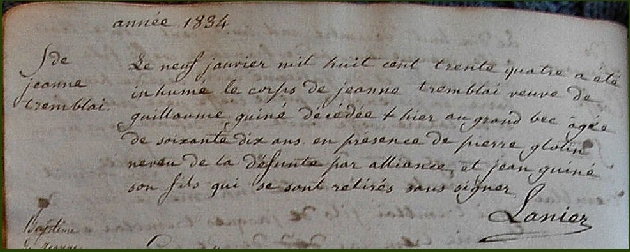 année 1834
S de
jeanne
tremblai
Le neuf janvier mil huit cent trente quatre a été
inhumé le corps de jeanne tremblai veuve de
guillaume guiné décédée + hier au grand bec agée
de soixante dix ans en presence de pierre glotin
neveu de la défunte par alliance, et jean guiné
son fils qui se sont retirés sans signer
Lanier
Baptême